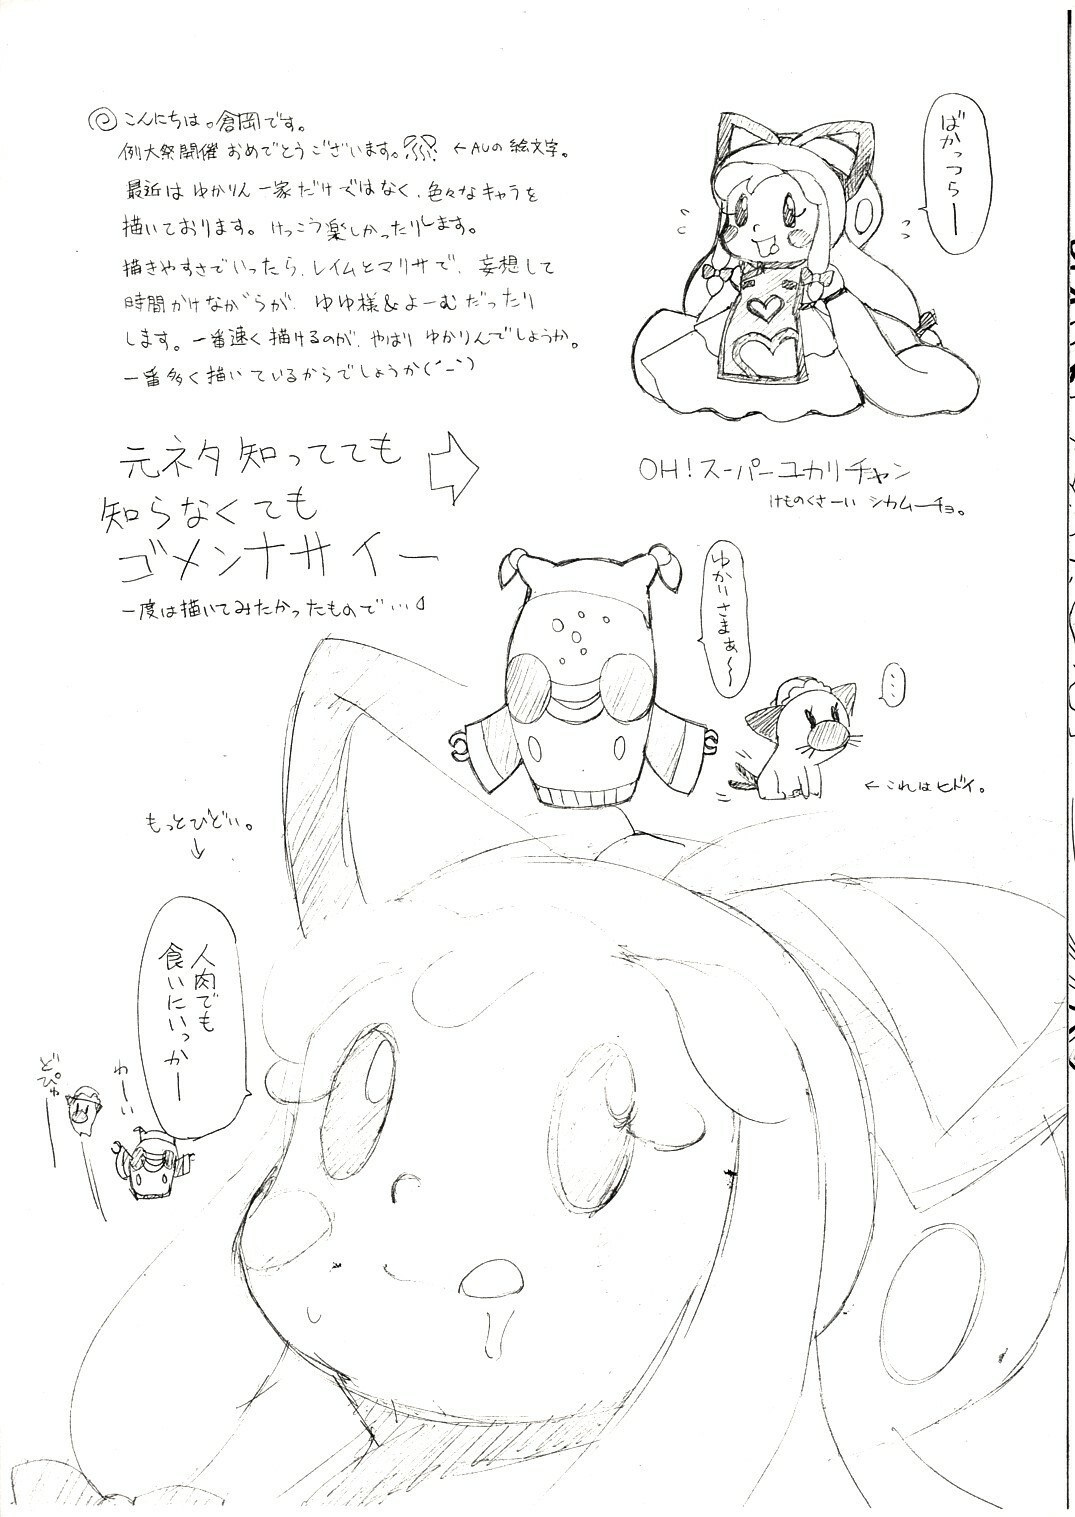 こんにちは。倉岡です。
例大祭開催おめでとうございます。 ←AUの絵文字。
最近はゆかりん一家だけではなく、色々なキャラを
描いております。けっこう楽しかったりします。
描きやすさでいったら、レイムとマリサで、妄想して
時間かけながらが、ゆゆ様&よーむだったり
します。一番速く描けるのが、やはりゆかりんでしょうか。
一番多く描いているからでしょうか(´_`)
ばかっつらー
元ネタ知ってても
知らなくても
ゴメンナサイー
一度は描いてみたかったもので…
OH!スーパーユカリチャン
けものくさーい シカムーチョ。
ゆかりさまぁ〜
…
←これはヒドイ。
もっとひどい。
↓
人肉でも
食いにいっかー
わーい
どぴゅー